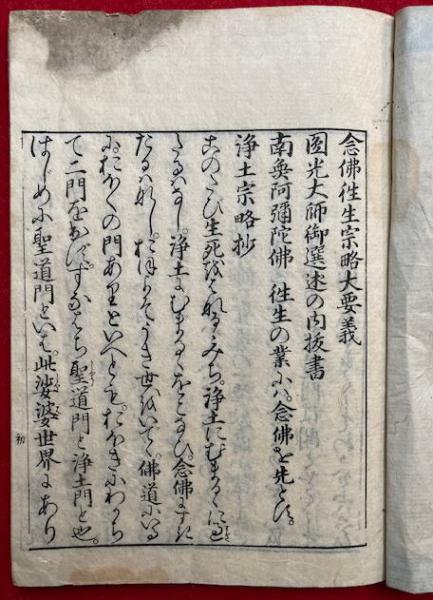 念佛徃生宗略大要義
圓光大師御選述の内抜書
南無阿彌陀佛 徃生の業にハ。念佛を先とす。
浄土宗略抄
このたび生死をはなるゝみち。浄土にむまるゝに過
たるはなし。浄土にむまるゝをこなひ。念佛にすぎ
たるハなし。おほかたうき世をいでゝ。佛道にいる
におほくの門ありといへども。おほきにわかち
て二門を出ず。すなはち聖道門と浄土門と也。
はじめに聖道門といは。此娑婆世界にあり
初